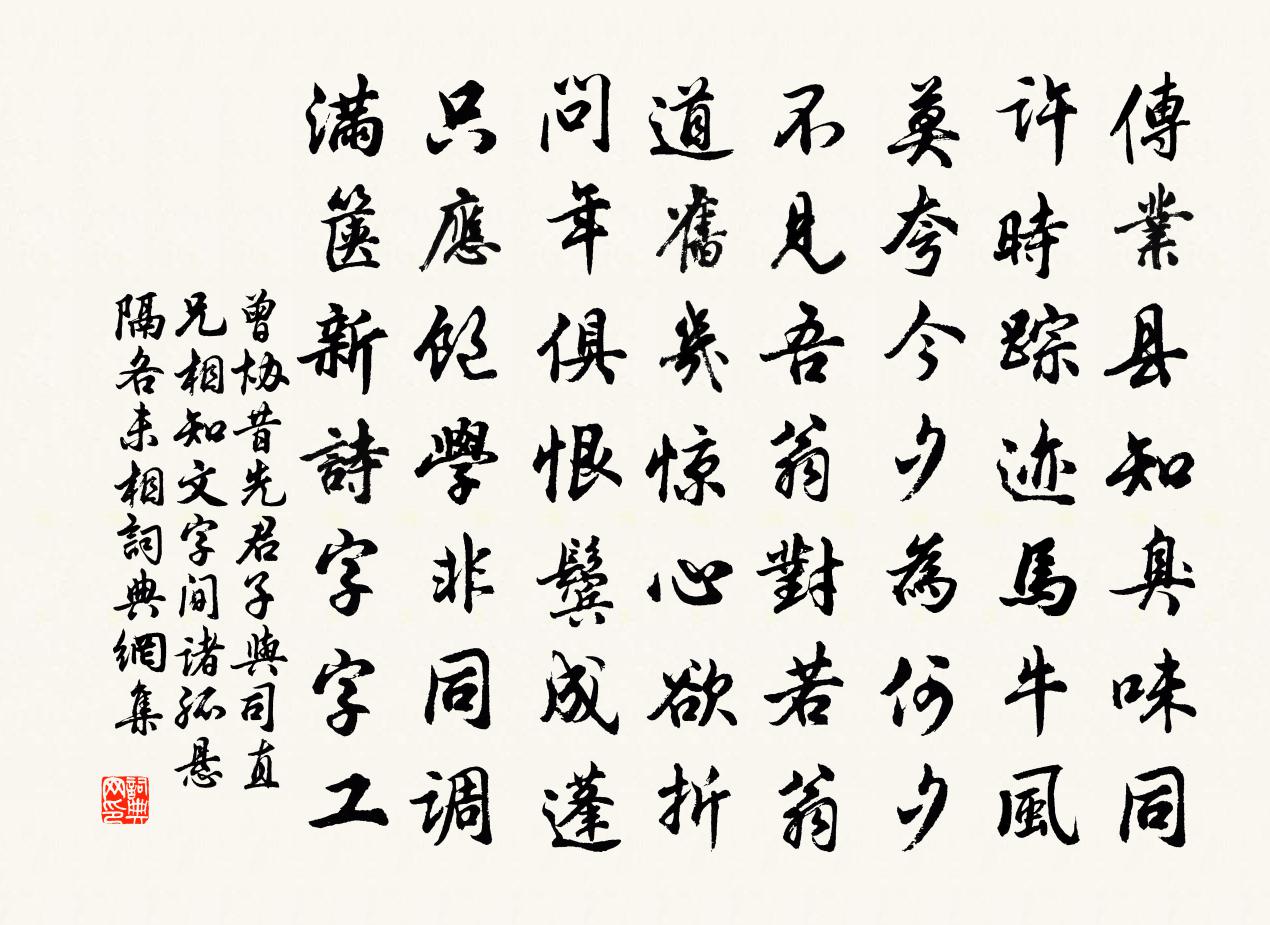 傳業县知臭味同
許時踪迹馬牛風
莫夸今夕為何夕
不見吾翁對若翁
道舊幾惊心欲折
問年俱恨鬓成蓬
只應飽學非同调
满箧新詩字字工
曾协昔先君子與司直
兄相知文字间诸孤悬
隔各未相詞典網集
詞典网印